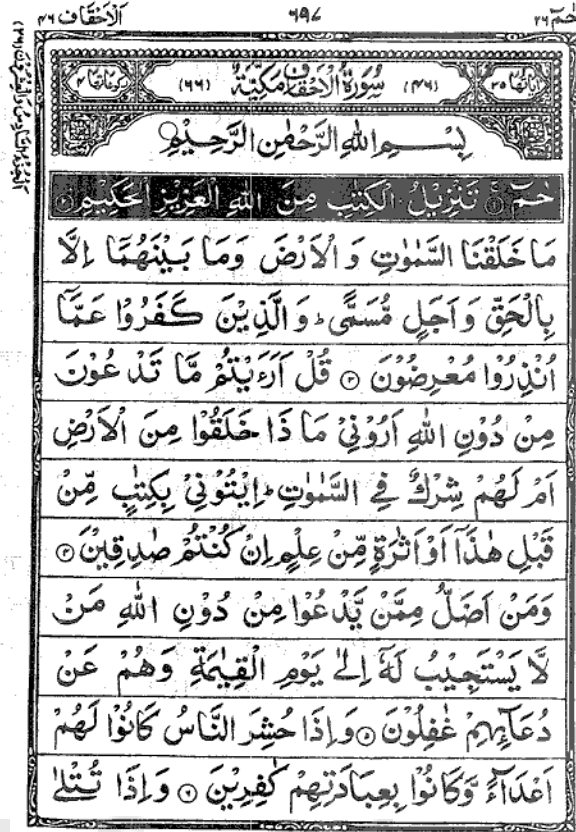 حٰمٓ ٢٦
٦٩٧
اَلْاَحْقَاف ٤٦
اٰيَاتُهَا ٣٥
(٤٦) سُوْرَةُ الْاَحْقَافِ مَكِّيَّةٌ (٦٦)
رُكُوْعَاتُهَا ٤
بِسْمِ اللهِ الرَّحْمٰنِ الرَّحِيْمِ
حٰمٓ ۚ ١ تَنْزِيْلُ الْكِتٰبِ مِنَ اللهِ الْعَزِيْزِ الْحَكِيْمِ ٢
مَا خَلَقْنَا السَّمٰوٰتِ وَ الْاَرْضَ وَمَا بَيْنَهُمَآ اِلَّا
بِالْحَقِّ وَ اَجَلٍ مُّسَمًّى ؕ وَ الَّذِيْنَ كَفَرُوْا عَمَّآ
اُنْذِرُوْا مُعْرِضُوْنَ ٣ قُلْ اَرَءَيْتُمْ مَّا تَدْعُوْنَ
مِنْ دُوْنِ اللهِ اَرُوْنِيْ مَا ذَا خَلَقُوْا مِنَ الْاَرْضِ
اَمْ لَهُمْ شِرْكٌ فِي السَّمٰوٰتِ ؕ اِيْتُوْنِيْ بِكِتٰبٍ مِّنْ
قَبْلِ هٰذَآ اَوْ اَثٰرَةٍ مِّنْ عِلْمٍ اِنْ كُنْتُمْ صٰدِقِيْنَ ٤
وَمَنْ اَضَلُّ مِمَّنْ يَّدْعُوْا مِنْ دُوْنِ اللهِ مَنْ
لَّا يَسْتَجِيْبُ لَهٗٓ اِلٰى يَوْمِ الْقِيٰمَةِ وَهُمْ عَنْ
دُعَآئِهِمْ غٰفِلُوْنَ ٥ وَاِذَا حُشِرَ النَّاسُ كَانُوْا لَهُمْ
اَعْدَآءً وَّكَانُوْا بِعِبَادَتِهِمْ كٰفِرِيْنَ ٦ وَاِذَا تُتْلٰى